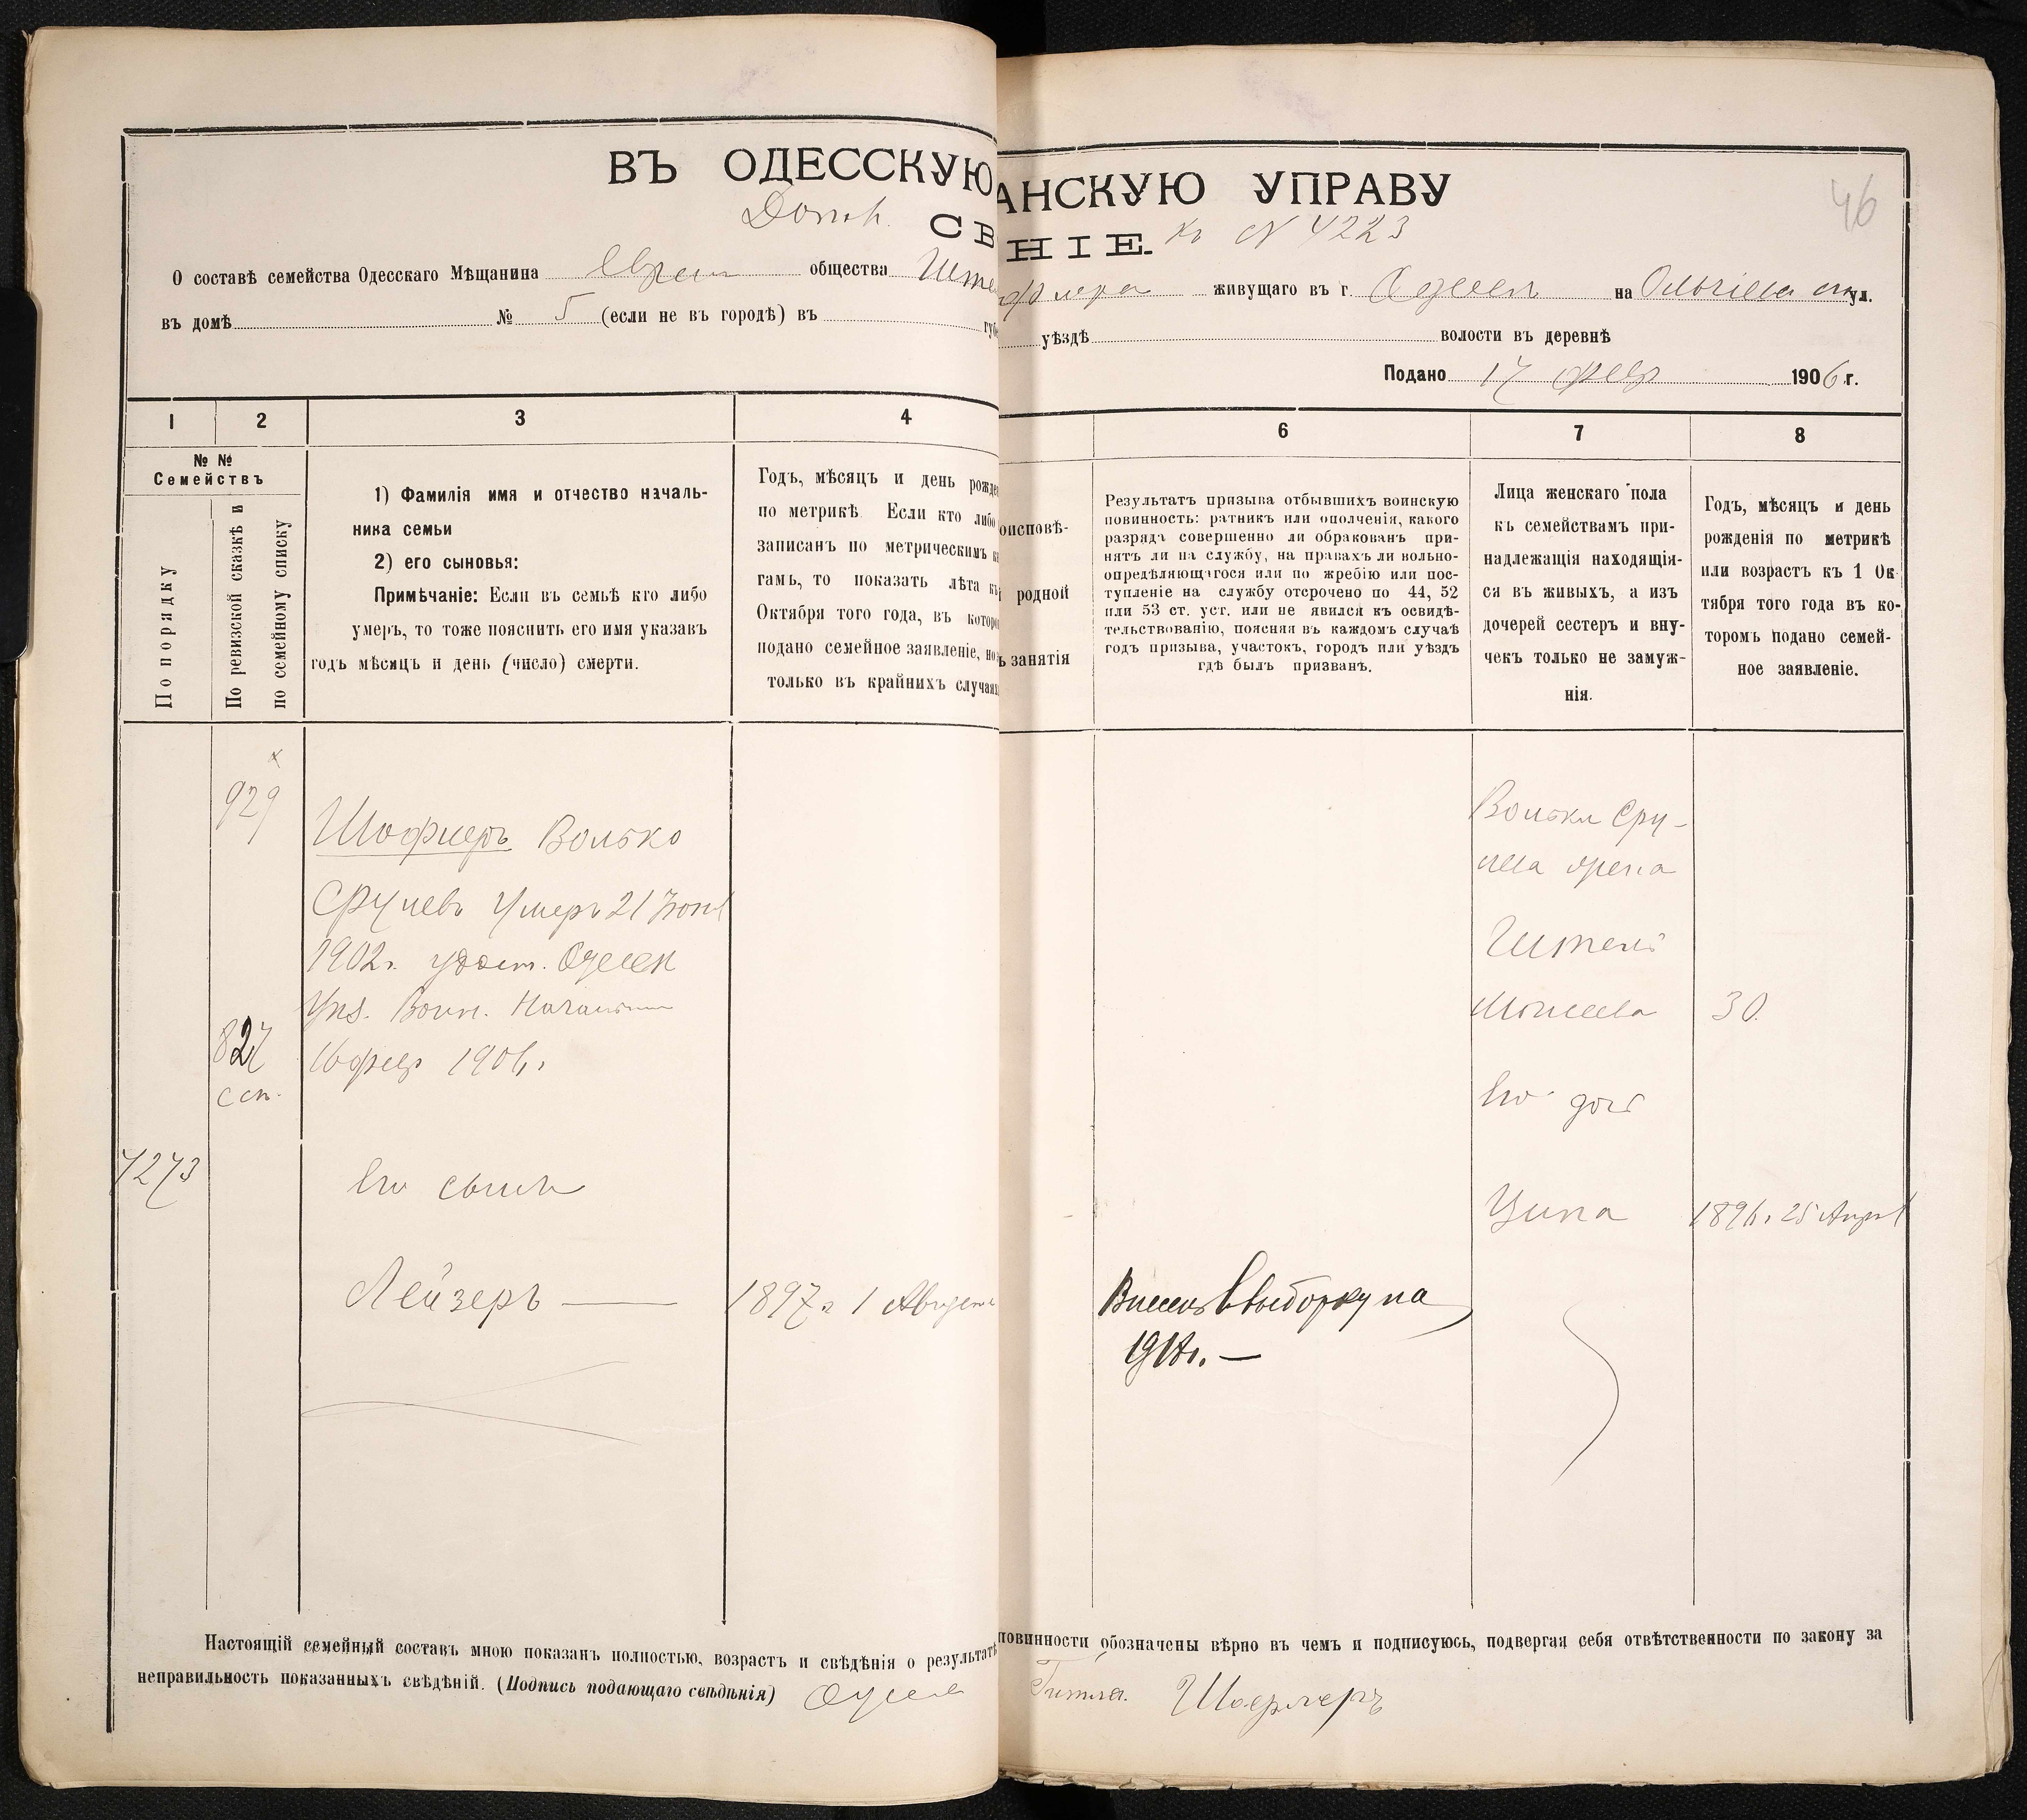 ВЪ ОДЕССКУЮ АНСКУЮ УПРАВУ
46
СВ НІЕ. къ N 4223
О составѣ семейства Одесскаго Мѣщанина Евреи общества живущаго въ г. Одессѣ на ул.
въ домѣ № 5 (если не въ городѣ) въ губ уѣздѣ волости въ деревнѣ
Подано 17 февр 1906 г.
1 2 3 4 6 7 8
№ №
Семействъ
По порядку
По ревизской сказкѣ и
по семейному списку
1) Фамилія имя и отчество началь-
ника семьи
2) его сыновья:
Примѣчаніе: Если въ семьѣ кто либо
умеръ, то тоже пояснить его имя указавъ
годъ мѣсяцъ и день (число) смерти.
Годъ, мѣсяцъ и день рожде
по метрикѣ Если кто либо
записанъ по метрическимъ
гамъ, то показать лѣта къ
Октября того года, въ котор
подано семейное заявленіе, но
только въ крайнихъ случая
оисповѣ-
родной
занятія
Результатъ призыва отбывшихъ воинскую
повинность: ратникъ или ополченія, какого
разряда совершенно ли обракованъ при-
нятъ ли на службу, на правахъ ли вольно-
опредѣляющагося или по жребію или пос-
тупленіе на службу отсрочено по 44, 52
или 53 ст. уст. или не явился къ освидѣ-
тельствованію, поясняя въ каждомъ случаѣ
годъ призыва, участокъ, городъ или уѣздъ
гдѣ былъ призванъ.
Лица женскаго пола
къ семействамъ при-
надлежащія находящія-
ся въ живыхъ, а изъ
дочерей сестеръ и вну-
чекъ только не замуж-
нія.
Годъ, мѣсяцъ и день
рожденія по метрикѣ
или возрастъ къ 1 Ок-
тября того года въ ко-
торомъ подано семей-
ное заявленіе.
929
Шофлеръ Волько
Срулевъ Умеръ 21 Іюня
1902г. удост. Одесск
Упр. Воин. Начальника
16 февр 1906г.
827
ссп.
7273
Его сынъ
Лейзеръ — 1897 г 1 Августа
Внесенъ в выборку на
1918г. —
Волька Сру-
лева жена
Моисеева 30
Его дочь
Ципа 1896г. 25 Апрѣл
Настоящій семейный составъ мною показанъ полностью, возрастъ и свѣдѣнія о результатѣ повинности обозначены вѣрно въ чемъ и подписуюсь, подвергая себя отвѣтственности по закону за
неправильность показанныхъ свѣдѣній. (Подпись подающаго свѣдѣнія) Шофлеръ